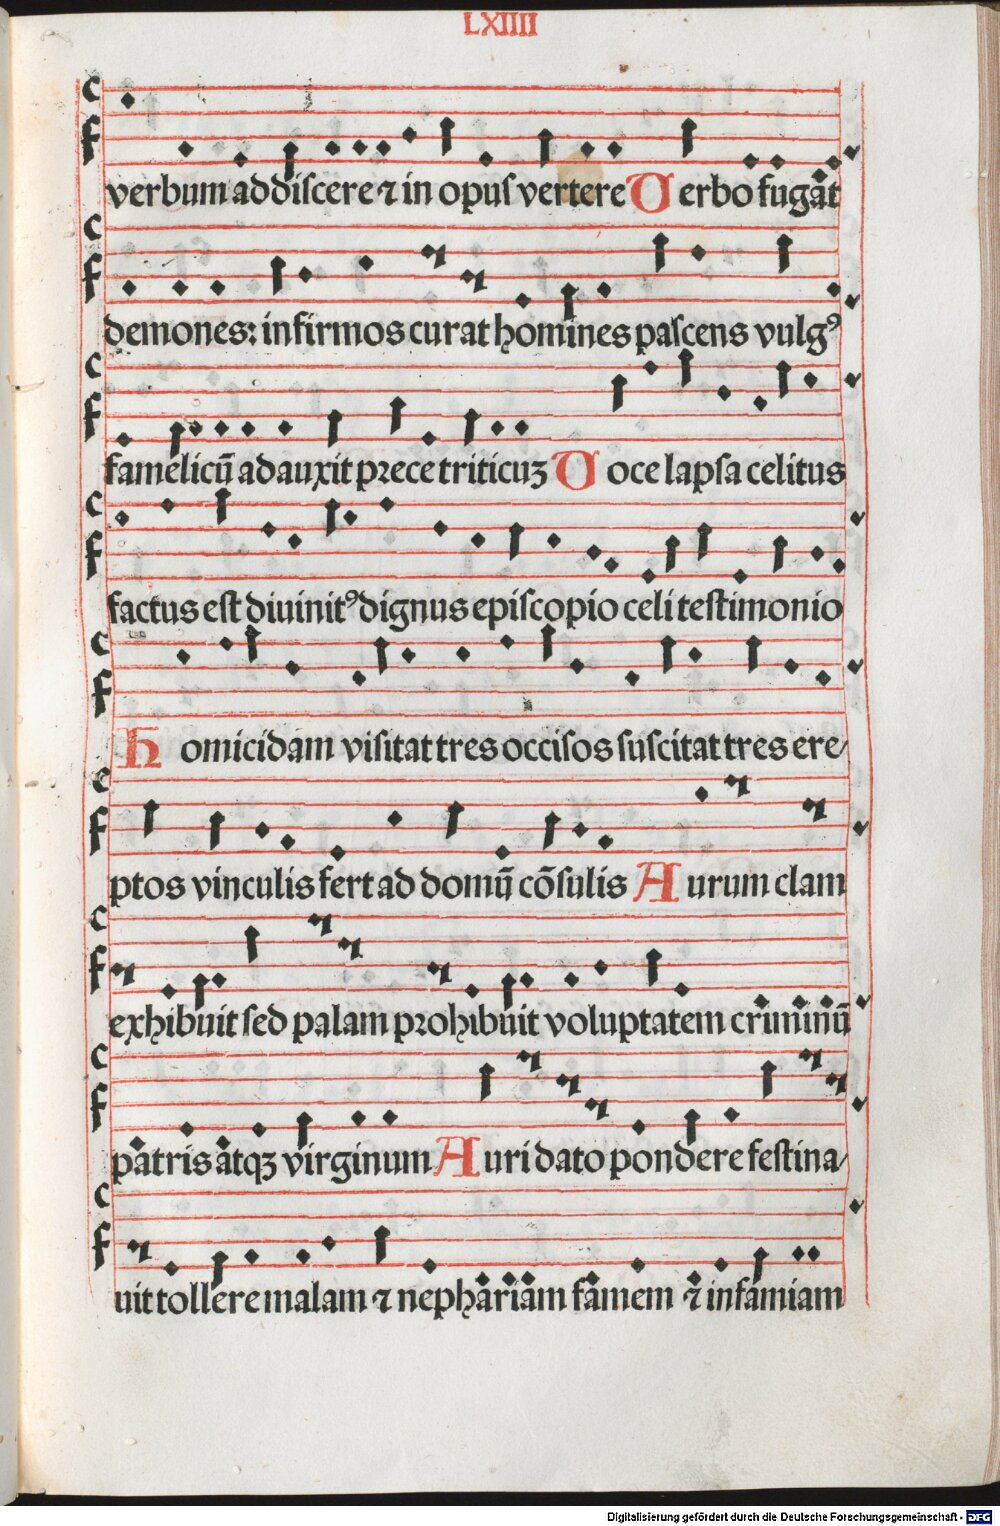 LXIIII
verbum addiscere ⁊ in opus vertere Verbo fugat
demones: infirmos curat homines pascens vulgꝰ
famelicū adauxit prece triticuꝫ Voce lapsa celitus
factus est diuinitꝰ dignus episcopio celi testimonio
Homicidam visitat tres occisos suscitat tres ere/
ptos vinculis fert ad domū cōsulis Aurum clam
exhibuit sed palam prohibuit voluptatem criminū
patris atqꝫ virginum Auri dato pondere festina/
uit tollere malam ⁊ nephariam famem ⁊ infamiam
Digitalisierung gefördert durch die Deutsche Forschungsgemeinschaft - DFG